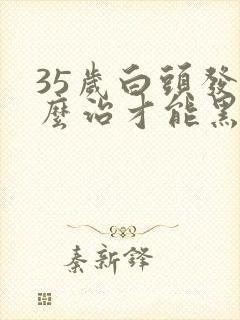 35歲白頭發
麼治才能黑
秦新鐸